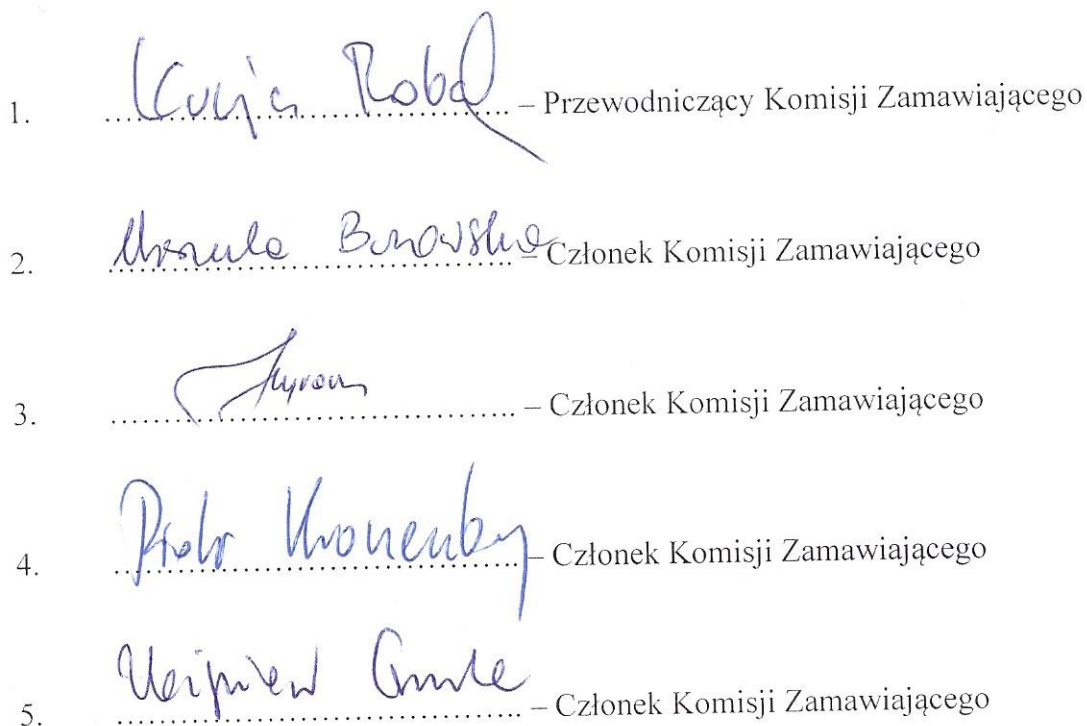 1. Łucja Robak – Przewodniczący Komisji Zamawiającego
2. Urszula – Członek Komisji Zamawiającego
3. – Członek Komisji Zamawiającego
4. Piotr – Członek Komisji Zamawiającego
5. Zbigniew – Członek Komisji Zamawiającego